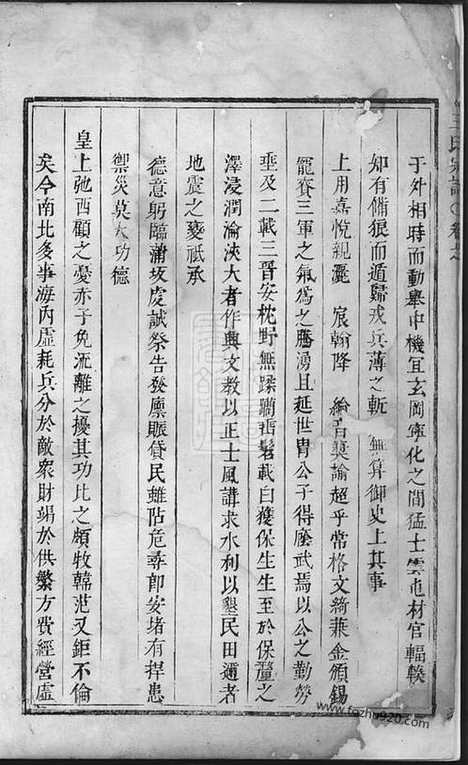 王氏家譜 卷之
于外相時而動舉中機宜玄岡寧化之間猛士雲屯材官輻輳
知有備狼而遁歸戎兵薄之斬 無算御史上其事
上用嘉悅親灑 宸翰降 綸音奬諭超乎常格文綺兼金頒錫
寵賚三軍之氣爲之騰湧且延世胄公子得廕武焉以公之勤勞
垂及二載三晋安枕野無蹂躪雷髫載白獲保生生至於保釐之
澤浸潤淪浹大者作興文教以正士風講求水利以墾民田邇者
地震之變祇承
德意躬臨蒲坂虔誠祭告發廪賑貸民雖阽危尋卽安堵有捍患
禦災莫大功德
皇上弛西顧之憂赤子免流離之擾其功比之頗牧韓范又鉅不倫
矣今南北多事海內虛耗兵分於敵衆財竭於供繁方費經營虛
www.fozhu920.com